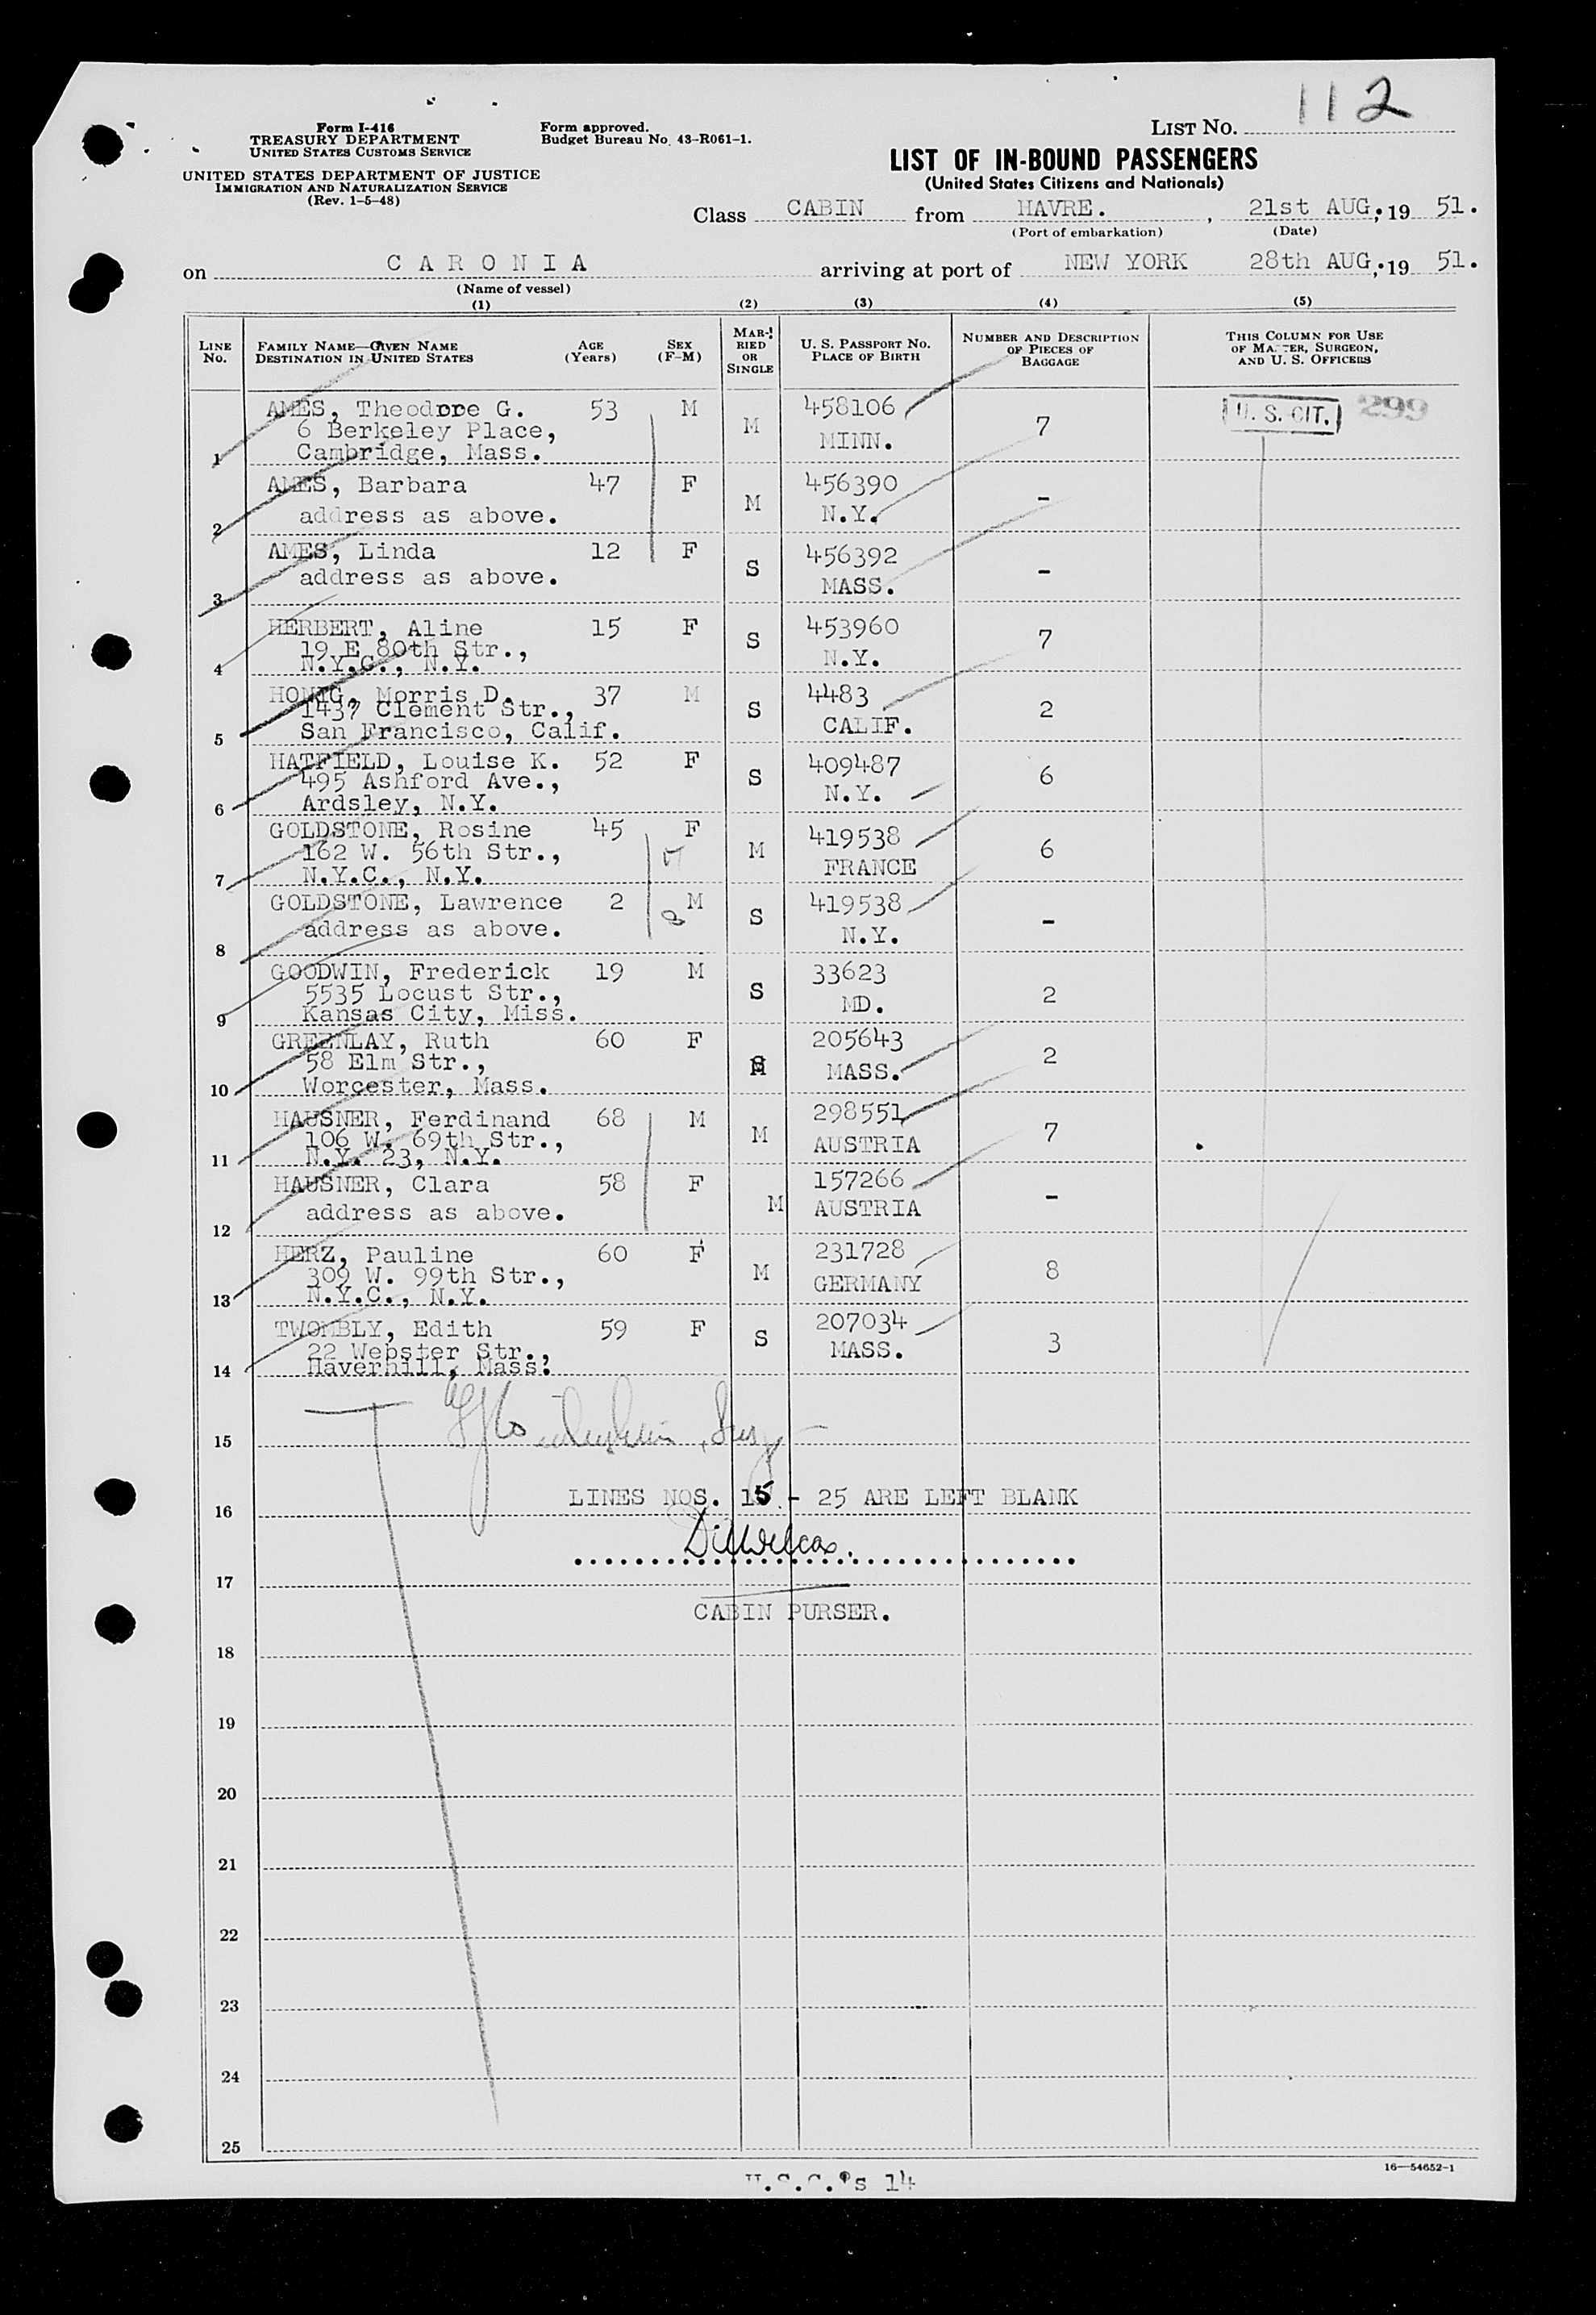 112
Form I-416
TREASURY DEPARTMENT
UNITED STATES CUSTOMS SERVICE
UNITED STATES DEPARTMENT OF JUSTICE
IMMIGRATION AND NATURALIZATION SERVICE
(Rev. 1-5-48)
Form approved.
Budget Bureau No. 43-R061-1.
LIST NO.
LIST OF IN-BOUND PASSENGERS
(United States Citizens and Nationals)
Class CABIN from HAVRE. , 21st AUG, 19 51.
(Port of embarkation) (Date)
on CARONIA arriving at port of NEW YORK 28th AUG, 19 51.
(Name of vessel)
(1) (2) (3) (4) (5)
LINE NO.
FAMILY NAME—GIVEN NAME
DESTINATION IN UNITED STATES
AGE (Years)
SEX (F-M)
MARRIED OR SINGLE
U. S. PASSPORT NO.
PLACE OF BIRTH
NUMBER AND DESCRIPTION OF PIECES OF BAGGAGE
THIS COLUMN FOR USE OF MASTER, SURGEON, AND U. S. OFFICERS
AMES, Theodore G. 53 M M 458106 7 U. S. CIT. 299
6 Berkeley Place, MINN.
1 Cambridge, Mass.
AMES, Barbara 47 F M 456390 -
2 address as above. N.Y.
AMES, Linda 12 F S 456392 -
3 address as above. MASS.
HERBERT, Aline 15 F S 453960 7
19 E 80th Str., N.Y.
4 N.Y.C., N.Y.
HONIG, Morris D. 37 M S 4483 2
1437 Clement Str., CALIF.
5 San Francisco, Calif.
HATFIELD, Louise K. 52 F S 409487 6
495 Ashford Ave., N.Y.
6 Ardsley, N.Y.
GOLDSTONE, Rosine 45 F M 419538 6
162 W. 56th Str., FRANCE
7 N.Y.C., N.Y.
GOLDSTONE, Lawrence 2 M S 419538 -
8 address as above. N.Y.
GOODWIN, Frederick 19 M S 33623 2
5535 Locust Str., MD.
9 Kansas City, Miss.
GREENLAY, Ruth 60 F S 205643 2
58 Elm Str., MASS.
10 Worcester, Mass.
HAUSNER, Ferdinand 68 M M 298551 7
106 W. 69th Str., AUSTRIA
11 N.Y. 23, N.Y.
HAUSNER, Clara 58 F M 157266 -
12 address as above. AUSTRIA
HERZ, Pauline 60 F M 231728 8
309 W. 99th Str., GERMANY
13 N.Y.C., N.Y.
TWOMBLY, Edith 59 F S 207034 3
22 Webster Str., MASS.
14 Haverhill, Mass.
15
16 LINES NOS. 15 - 25 ARE LEFT BLANK
17
CABIN PURSER.
18
19
20
21
22
23
24
25
16—54652-1
U.S.C.'s 14